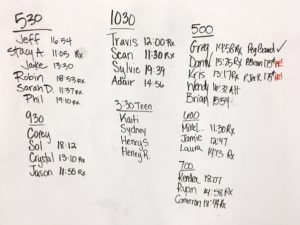 530
Jeff 16:54
Stacy A. 11:05 Rx
Jake 13:30
Robin 18:53 Rx
Sarah D. 11:37 Rx
Phil 19:10 Rx
930
Corey
Sol 18:12
Crystal 13:10 Rx
Jason 11:55 Rx
1030
Travis 12:00 Rx
Sean 11:30 Rx
Sylvie 19:39
Adair 14:56
3:30 Teen
Kaiti
Sydney
Henry S.
Henry K.
500
Greg 14:58 Rx Peg Board ✓
15:25 Rx 175# PR!
Kris 13:17 Rx
Wendy
Brian 15:54
600
Mike L. 11:30 Rx
Jamie 12:47
Laura 14:73 Rx
700
Kendra 18:07
Ryan 14:58 Rx
Cameron 18:44 Rx